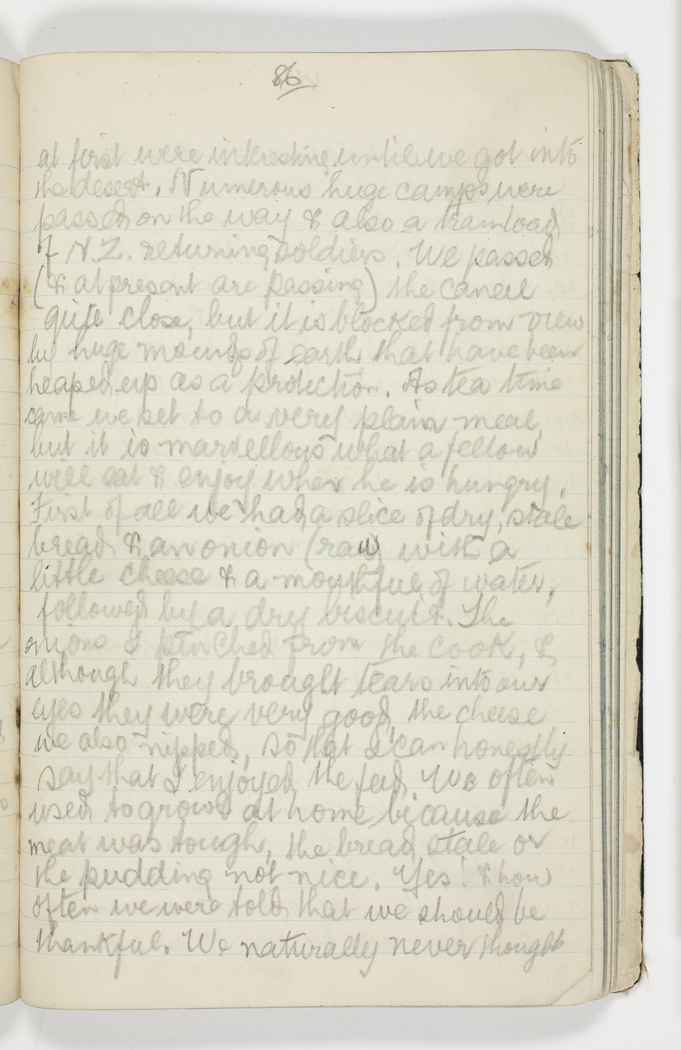 86
at first were interesting until we got into
the desert. Numerous huge camps were
passed on the way & also a trainload
of N.Z. returning soldiers. We passed
(& at present are passing) the canal
quite close, but it is blocked from view
by huge mounds of earth that have been
heaped up as a protection. As tea time
came we set to a very plain meal,
but it is marvellous what a fellow
will eat & enjoy when he is hungry.
First of all we had a slice of dry, stale
bread & an onion (raw) with a
little cheese & a mouthful of water,
followed by a dry biscuit. The
onions I pinched from the cook, &
although they brought tears into our
eyes they were very good, the cheese
we also nipped, so that I can honestly
say that I enjoyed the feed. We often
used to growl at home because the
meat was tough, the bread stale or
the pudding not nice. Yes! & how
often we were told that we should be
thankful. We naturally never thought